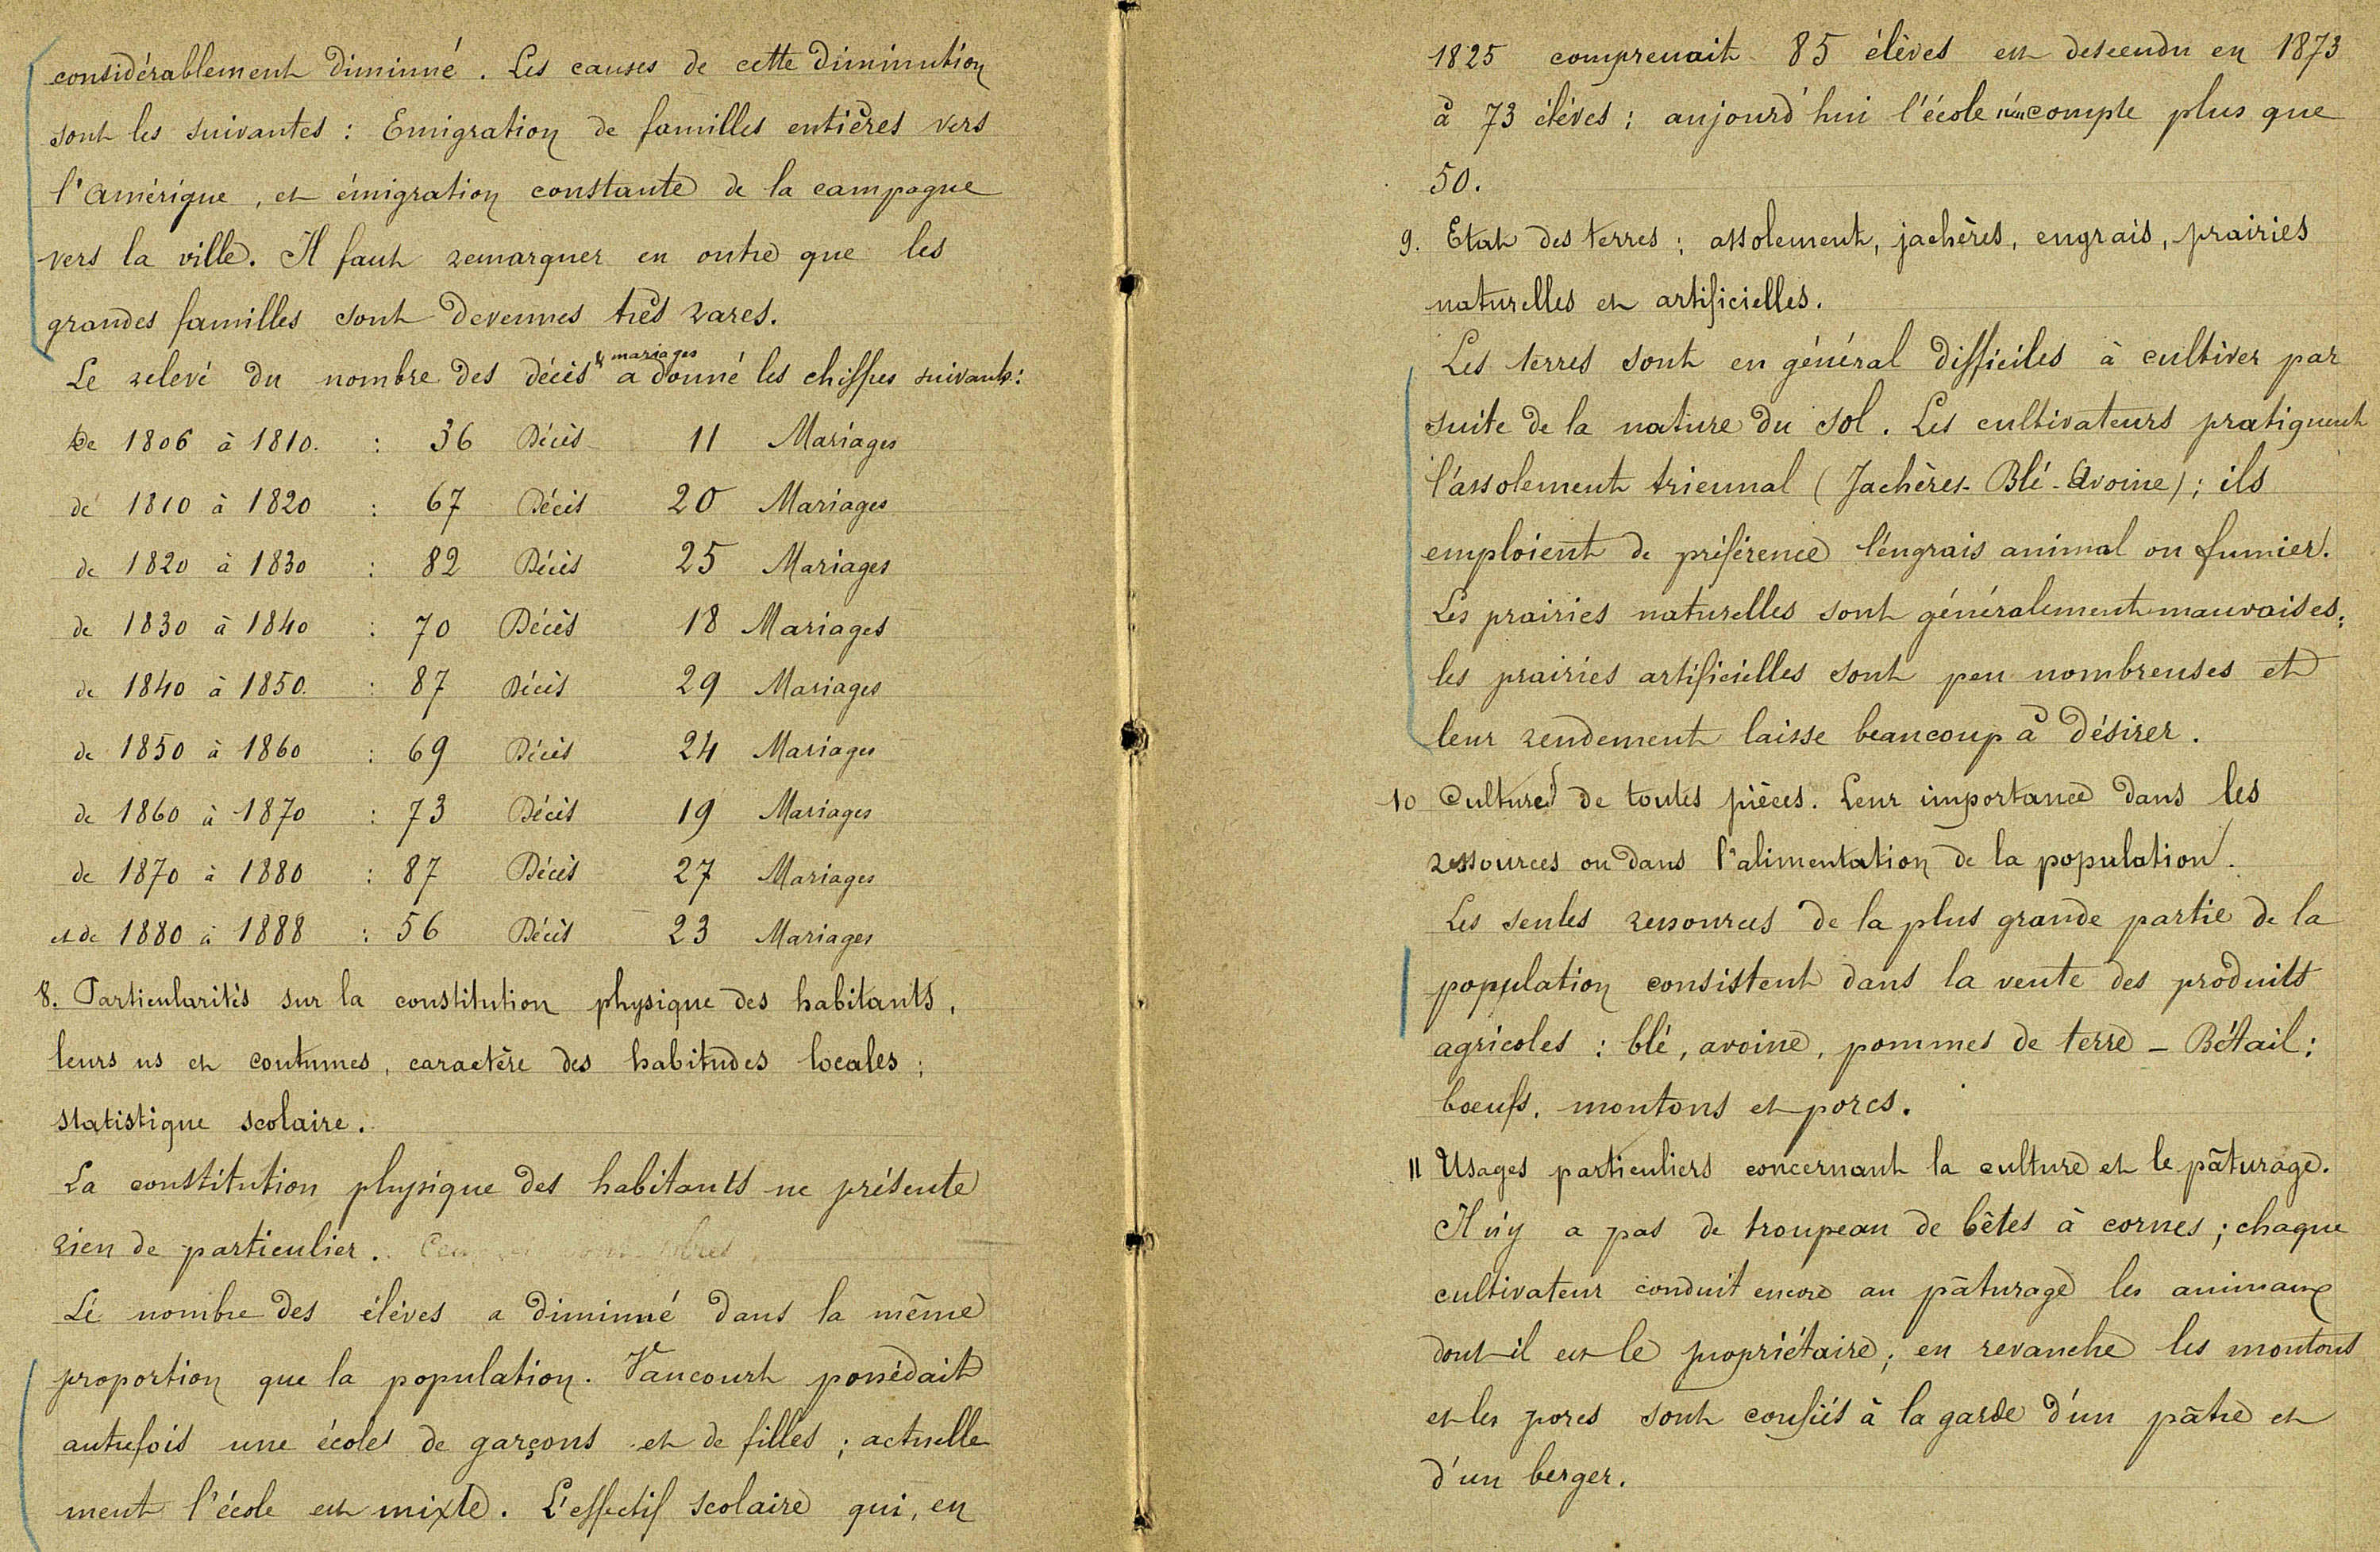 considérablement diminué. Les causes de cette diminution
sont les suivantes : Emigration de familles entières vers
l'Amérique, et émigration constante de la campagne
vers la ville. Il faut remarquer en outre que les
grandes familles sont devenues très rares.
Le relevé du nombre des décès & mariages a donné les chiffres suivants :
De 1806 à 1810. : 36 Décès 11 Mariages
de 1810 à 1820 : 67 Décès 20 Mariages
de 1820 à 1830 : 82 Décès 25 Mariages
de 1830 à 1840 : 70 Décès 18 Mariages
de 1840 à 1850. : 87 Décès 29 Mariages
de 1850 à 1860 : 69 Décès 24 Mariages
de 1860 à 1870 : 73 Décès 19 Mariages
de 1870 à 1880 : 87 Décès 27 Mariages
et de 1880 à 1888 : 56 Décès 23 Mariages
8. Particularités sur la constitution physique des habitants,
leurs us et coutumes, caractère des habitudes locales ;
statistique scolaire.
La constitution physique des habitants ne présente
rien de particulier.
Le nombre des élèves a diminué dans la même
proportion que la population. Vaucourt possédait
autrefois une école de garçons et de filles ; actuelle
ment l'école est mixte. L'effectif scolaire qui, en
1825 comprenait 85 élèves est descendu en 1873
à 73 élèves ; aujourd'hui l'école n'en compte plus que
50.
9. Etat des terres ; assolement, jachères, engrais, prairies
naturelles et artificielles.
Les terres sont en général difficiles à cultiver par
suite de la nature du sol. Les cultivateurs pratiquent
l'assolement triennal (Jachères - Blé - Avoine) ; ils
emploient de préférence l'engrais animal ou fumier.
Les prairies naturelles sont généralement mauvaises ;
les prairies artificielles sont peu nombreuses et
leur rendement laisse beaucoup à désirer.
10 Cultures de toutes pièces. Leur importance dans les
ressources ou dans l'alimentation de la population.
Les seules ressources de la plus grande partie de la
population consistent dans la vente des produits
agricoles : blé, avoine, pommes de terre - Bétail :
boeufs, moutons et porcs.
11 Usages particuliers concernant la culture et le pâturage.
Il n'y a pas de troupeau de bêtes à cornes ; chaque
cultivateur conduit encore au pâturage les animaux
dont il est le propriétaire ; en revanche les moutons
et les porcs sont confiés à la garde d'un pâtre et
d'un berger.